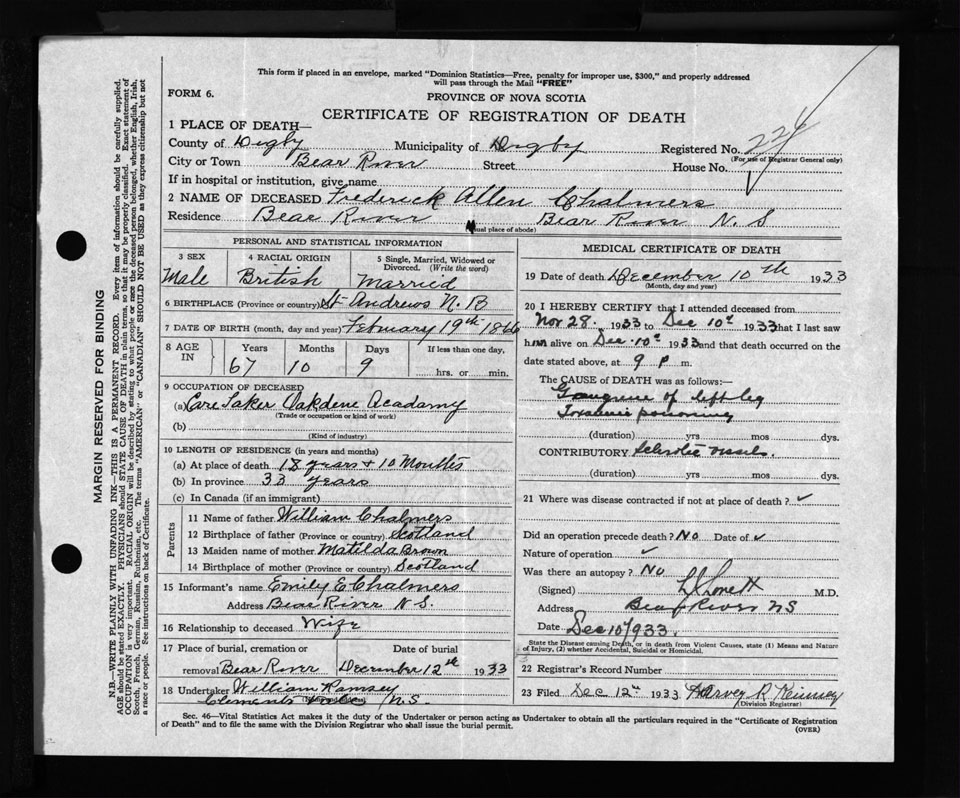 This form if placed in an envelope, marked "Dominion Statistics—Free, penalty for improper use, $300," and properly addressed
will pass through the Mail "FREE"
FORM 6.
PROVINCE OF NOVA SCOTIA
CERTIFICATE OF REGISTRATION OF DEATH
1 PLACE OF DEATH—
County of Digby Municipality of Digby Registered No. 224
(For use of Registrar General only)
City or Town Bear River Street House No.
If in hospital or institution, give name
2 NAME OF DECEASED Frederick Allen Chalmers
Residence Bear River Bear River N.S
(Usual place of abode)
PERSONAL AND STATISTICAL INFORMATION
3 SEX 4 RACIAL ORIGIN 5 Single, Married, Widowed or
Divorced. (Write the word)
Male British Married
6 BIRTHPLACE (Province or country) St Andrews N.B
7 DATE OF BIRTH (month, day and year) February 19th 1866
8 AGE IN Years Months Days If less than one day,
67 10 9 hrs. or min.
9 OCCUPATION OF DECEASED
(a) Care Taker Oakdene Acadamy
(Trade or occupation or kind of work)
(b)
(Kind of industry)
10 LENGTH OF RESIDENCE (in years and months)
(a) At place of death 18 years + 10 Months
(b) In province 33 years
(c) In Canada (if an immigrant)
Parents
11 Name of father William Chalmers
12 Birthplace of father (Province or country) Scotland
13 Maiden name of mother Matilda Brown
14 Birthplace of mother (Province or country) Scotland
15 Informant's name Emily E Chalmers
Address Bear River N.S.
16 Relationship to deceased Wife
17 Place of burial, cremation or Date of burial
removal Bear River December 12th 1933
18 Undertaker William Ramsey
Clements N.S.
MEDICAL CERTIFICATE OF DEATH
19 Date of death December 10th 1933
(Month, day and year)
20 I HEREBY CERTIFY that I attended deceased from
Nov 28. 1933 to Dec 10th 1933 that I last saw
him alive on Dec 10th 1933 and that death occurred on the
date stated above, at 9 p m.
The CAUSE of DEATH was as follows:
Gangrene of left leg
poisoning
(duration) yrs mos dys.
CONTRIBUTORY vessels.
(duration) yrs mos dys.
21 Where was disease contracted if not at place of death? ✓
Did an operation precede death? No Date of ✓
Nature of operation ✓
Was there an autopsy? No
(Signed) M.D.
Address Bear River NS
Date Dec 10/933.
State the Disease causing Death, or in death from Violent Causes, state (1) Means and Nature
of Injury, (2) whether Accidental, Suicidal or Homicidal.
22 Registrar's Record Number
23 Filed Dec 12th 1933 Harvey R
(Division Registrar)
Sec. 46—Vital Statistics Act makes it the duty of the Undertaker or person acting as Undertaker to obtain all the particulars required in the "Certificate of Registration
of Death" and to file the same with the Division Registrar who shall issue the burial permit.
(OVER)
MARGIN RESERVED FOR BINDING
N.B.—WRITE PLAINLY WITH UNFADING INK—THIS IS A PERMANENT RECORD. Every item of information should be carefully supplied.
AGE should be stated EXACTLY. PHYSICIANS should STATE CAUSE OF DEATH in plain terms, so that it may be properly classified. Exact statement of
OCCUPATION is very important. RACIAL ORIGIN will be described by stating to what people or race the deceased person belonged, whether English, Irish,
Scotch, French, German, Russian, Ruthenian, etc. The terms "AMERICAN" or "CANADIAN" SHOULD NOT BE USED as they express citizenship but not
a race or people. See instructions on back of Certificate.